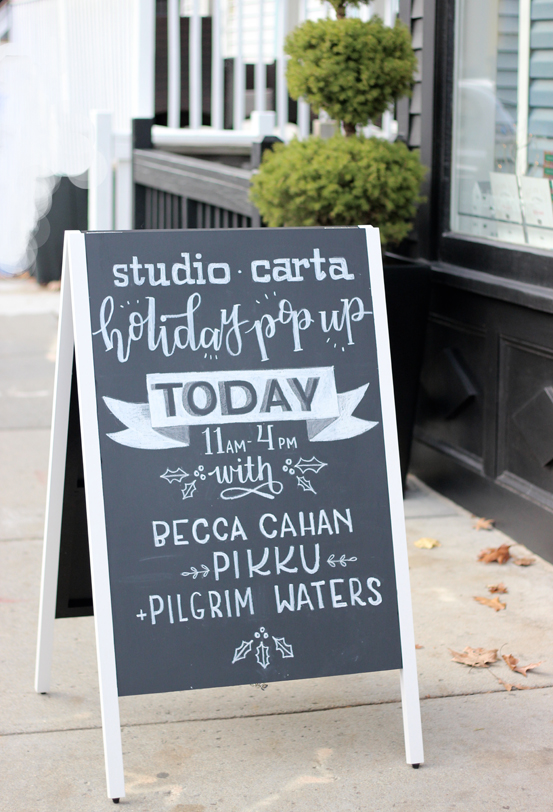 studio · carta
holiday pop up
TODAY
11AM-4PM
with
BECCA CAHAN
PIKKU
+PILGRIM WATERS